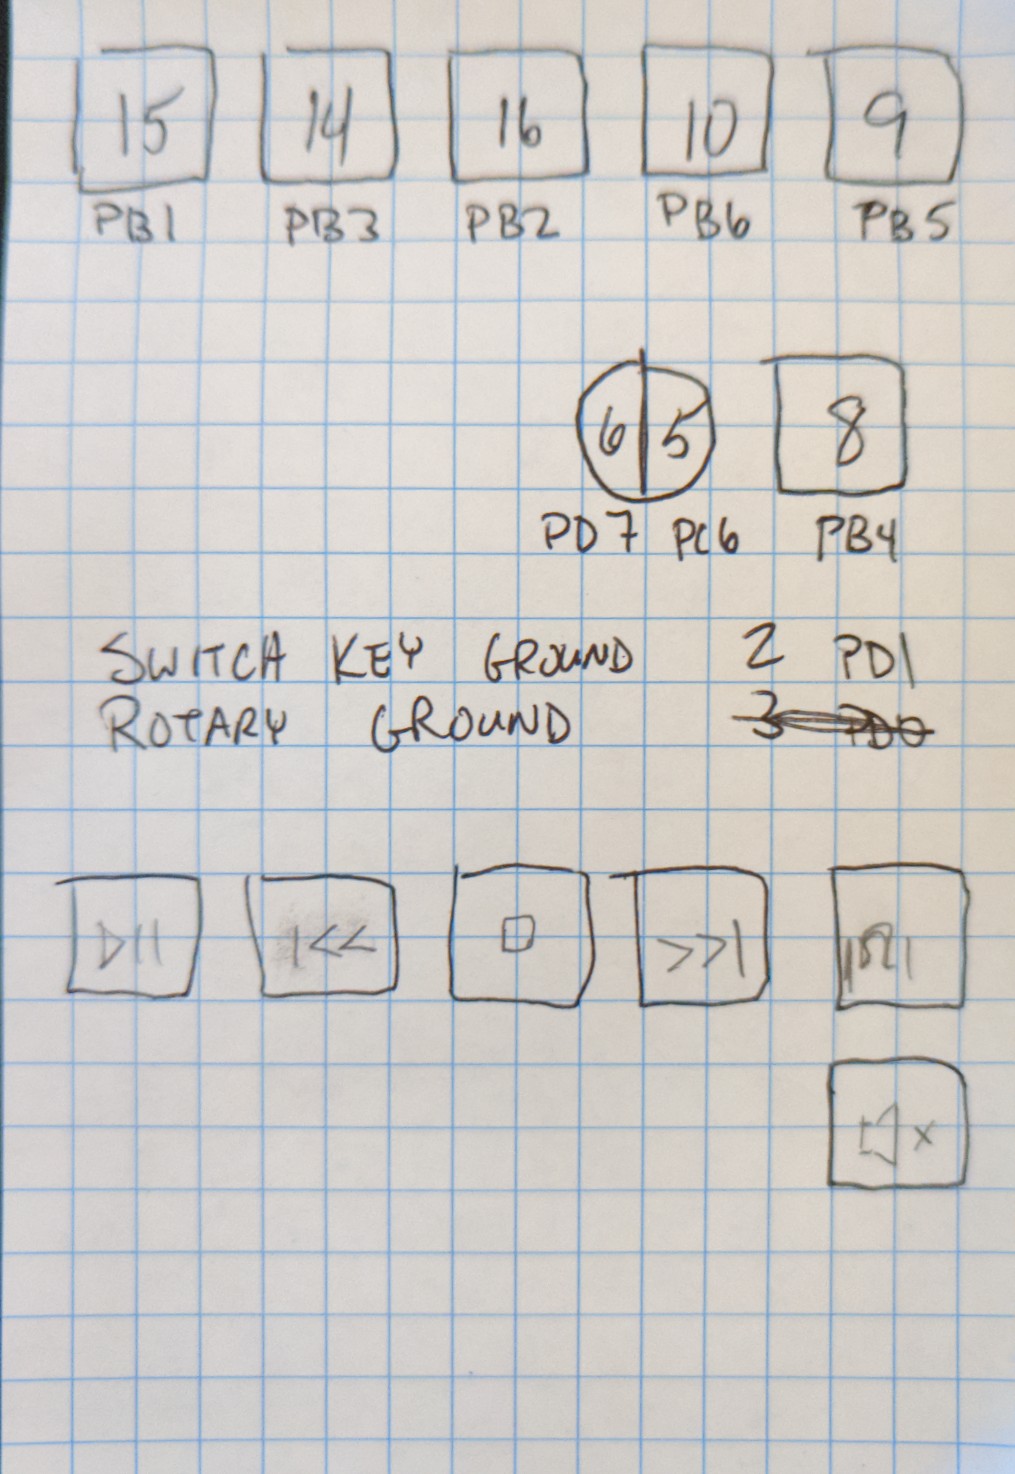 15 14 16 10 9
PB1 PB3 PB2 PB6 PB5
6 5 8
PD7 PC6 PB4
SWITCH KEY GROUND 2 PD1
ROTARY GROUND 3 PD0